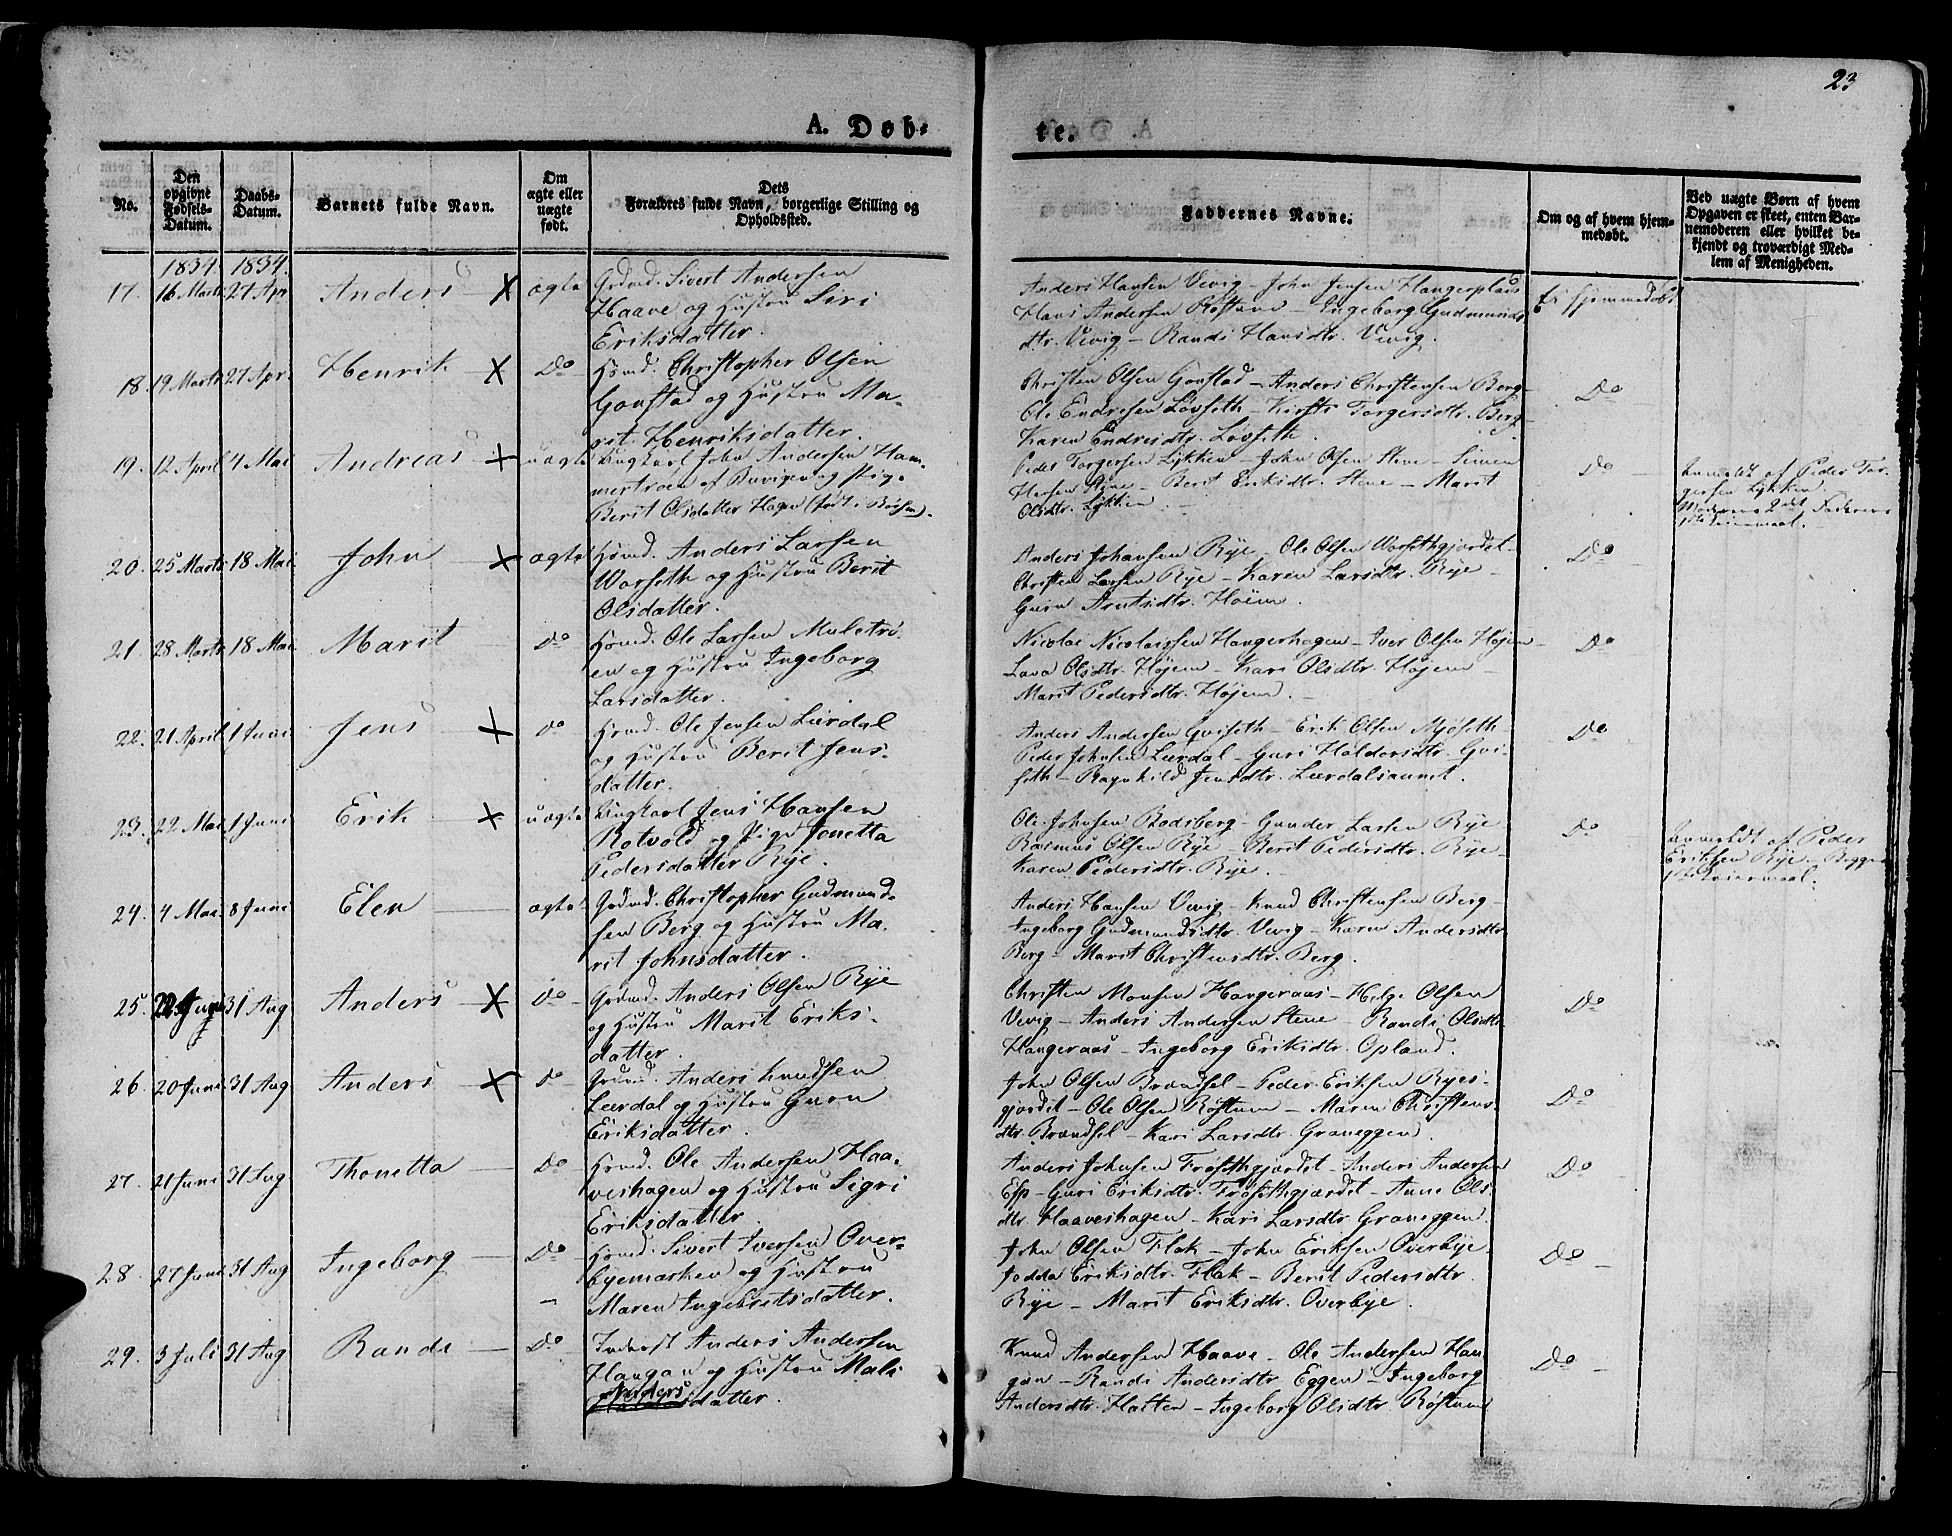 23
A. Døb-
te.
No.
Den opgivne Fødsels-Datum.
Daabs-Datum.
Barnets fulde Navn.
Om ægte eller uægte født.
Dets
Forældres fulde Navn, borgerlige Stilling og
Opholdssted.
Faddernes Navne.
Om og af hvem hjem-
medøbt.
Ved uægte Børn af hvem
Opgaven er skeet, enten Bar-
nemoderen eller hvilket be-
kjendt og troværdigt Med-
lem af Menigheden.
1834. 1834.
17. 16 Marts 27 Apr Anders X ægte Grdmd. Sivert Andersen
Haave og Hustru Siri
Eriksdatter.
Anders Hansen Vevig – John Jensen Hangerplads
Hans Andersen Røstum – Ingeborg Gudmunds
dtr. Vevig – Randi Hansdtr. Vevig.
Er hjemmedøbt
18. 19 Marts 27 Apr. Henrik X Do Hsmd. Christopher Olsen
Gonstad og Hustru Ma-
rit Henriksdatter.
Christen Olsen Gonstad – Anders Christensen Berg –
Ole Endresen Løvseth – Kirsti Torgersdtr. Berg
Karen Endresdtr. Løvseth.
Do
19. 12 April 4 Mai Andreas X uægte Ungkarl John Andersen Ham-
mertrøen af Buvigen og Pige
Berit Olsdatter Hagen (født i Børsen).
Peder Torgersen Lykken – John Olsen Stene – Simen
Hansen Stene – Berit Eriksdtr. Stene – Marit
Olsdtr. Lykken.
Do
Anmeldt af Peder Tor-
gersen Lykken.
Moderens 2det Faderens
1ste Leiermaal.
20. 25 Marts 18 Mai John X ægte Hsmd. Anders Larsen
Worseth og Hustru Berit
Olsdatter.
Anders Johansen Rye – Ole Olsen Worsethgjerdet –
Christen Larsen Rye – Karen Larsdtr. Rye –
Guru Arntsdtr. Høiem.
Do
21. 28 Marts 18 Mai Marit Do Hsmd. Ole Larsen Muletrø-
en og Hustru Ingeborg
Larsdatter.
Nicolai Nicolaissen Hangerhagen – Iver Olsen Højem
Lava Olsdtr. Høyem – Kari Olsdtr. Høyem –
Marit Pedersdtr. Høyem.
Do
22. 21 April 1 Juni Jens X Do Hsmd. Ole Jensen Lerdal
og Hustru Berit Jens-
datter.
Anders Andersen Qviseth – Erik Olsen Mjøseth –
Peder Johnsen Lerdal – Guri Haldorsdtr. Qvi-
seth – Ragnhild Jensdtr. Lerdalsaunet.
Do
23. 22 Mai 1 Juni Erik X uægte Ungkarl Jens Hansen
Rotvold og Pige Jonetta
Pedersdatter Rye.
Ole Johnsen Bodsberg – Gunder Larsen Rye –
Rasmus Olsen Rye – Berit Pedersdtr. Rye –
Karen Pedersdtr. Rye.
Do
Anmeldt af Peder
Eriksen Rye. Begges
1ste Leiermaal.
24. 4 Mai 8 Juni Elen ægte Grdmd. Christopher Gudmund-
sen Berg og Hustru Ma-
rit Johnsdatter.
Anders Hansen Vevig – Knud Christensen Berg –
Ingeborg Gudmundsdtr. Vevig – Karen Andersdtr.
Berg – Marit Christensdtr. Berg.
25. 31 Aug Anders X Do Grdmd. Anders Olsen Rye
og Hustru Marit Eriks-
datter.
Christen Monsen Hangeraas – Helge Olsen
Vevig – Anders Andersen Stene – Randi Olsdtr.
Hangeraas – Ingeborg Eriksdtr. Opland.
Do
26. 20 Juni 31 Aug Anders X Do Grdmd. Anders Knudsen
Lerdal og Hustru Guru
Eriksdatter.
John Olsen Brændsel – Peder Eriksen Ryes-
gjerdet – Ole Olsen Røstum – Maren Christens-
dtr. Brændsel – Kari Larsdtr. Graneggen.
Do
27. 21 Juni 31 Aug Thonetta Do Hsmd. Ole Andersen Haa-
veshagen og Hustru Sigri
Eriksdatter.
Anders Johnsen Frøsethgjerdet – Anders Andersen
Esp – Guri Eriksdtr. Frøsethgjerdet – Anne Ols-
dtr. Haaveshagen – Kari Larsdtr. Graneggen.
Do
28. 27 Juni 31 Aug Ingeborg Do Hsmd. Sivert Iversen Over-
byemarken og Hustru
Maren Ingebritsdatter.
John Olsen Flak – John Eriksen Overbye –
Jodda Eriksdtr. Flak – Berit Pedersdtr.
Rye – Marit Eriksdtr. Overbye.
Do
29. 3 Juli 31 Aug Randi Do Inderst Anders Andersen
Haugan og Hustru Mali
Andersdatter.
Knud Andersen Haave – Ole Andersen Hau-
gan – Randi Andersdtr. Eggen – Ingeborg
Andersdtr. Halten – Ingeborg Olsdtr. Røstum
Do